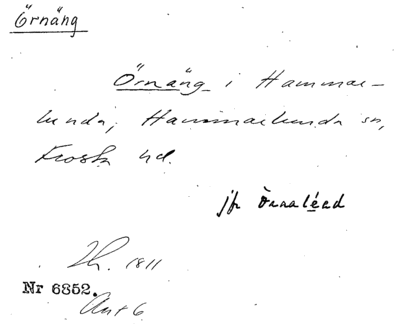 Örnäng
Örnäng i Hammar-
lunda, Hammarlunda sn,
Frosta hd.
jfr
Lh. 1811
Nr 6352.
Ant 6